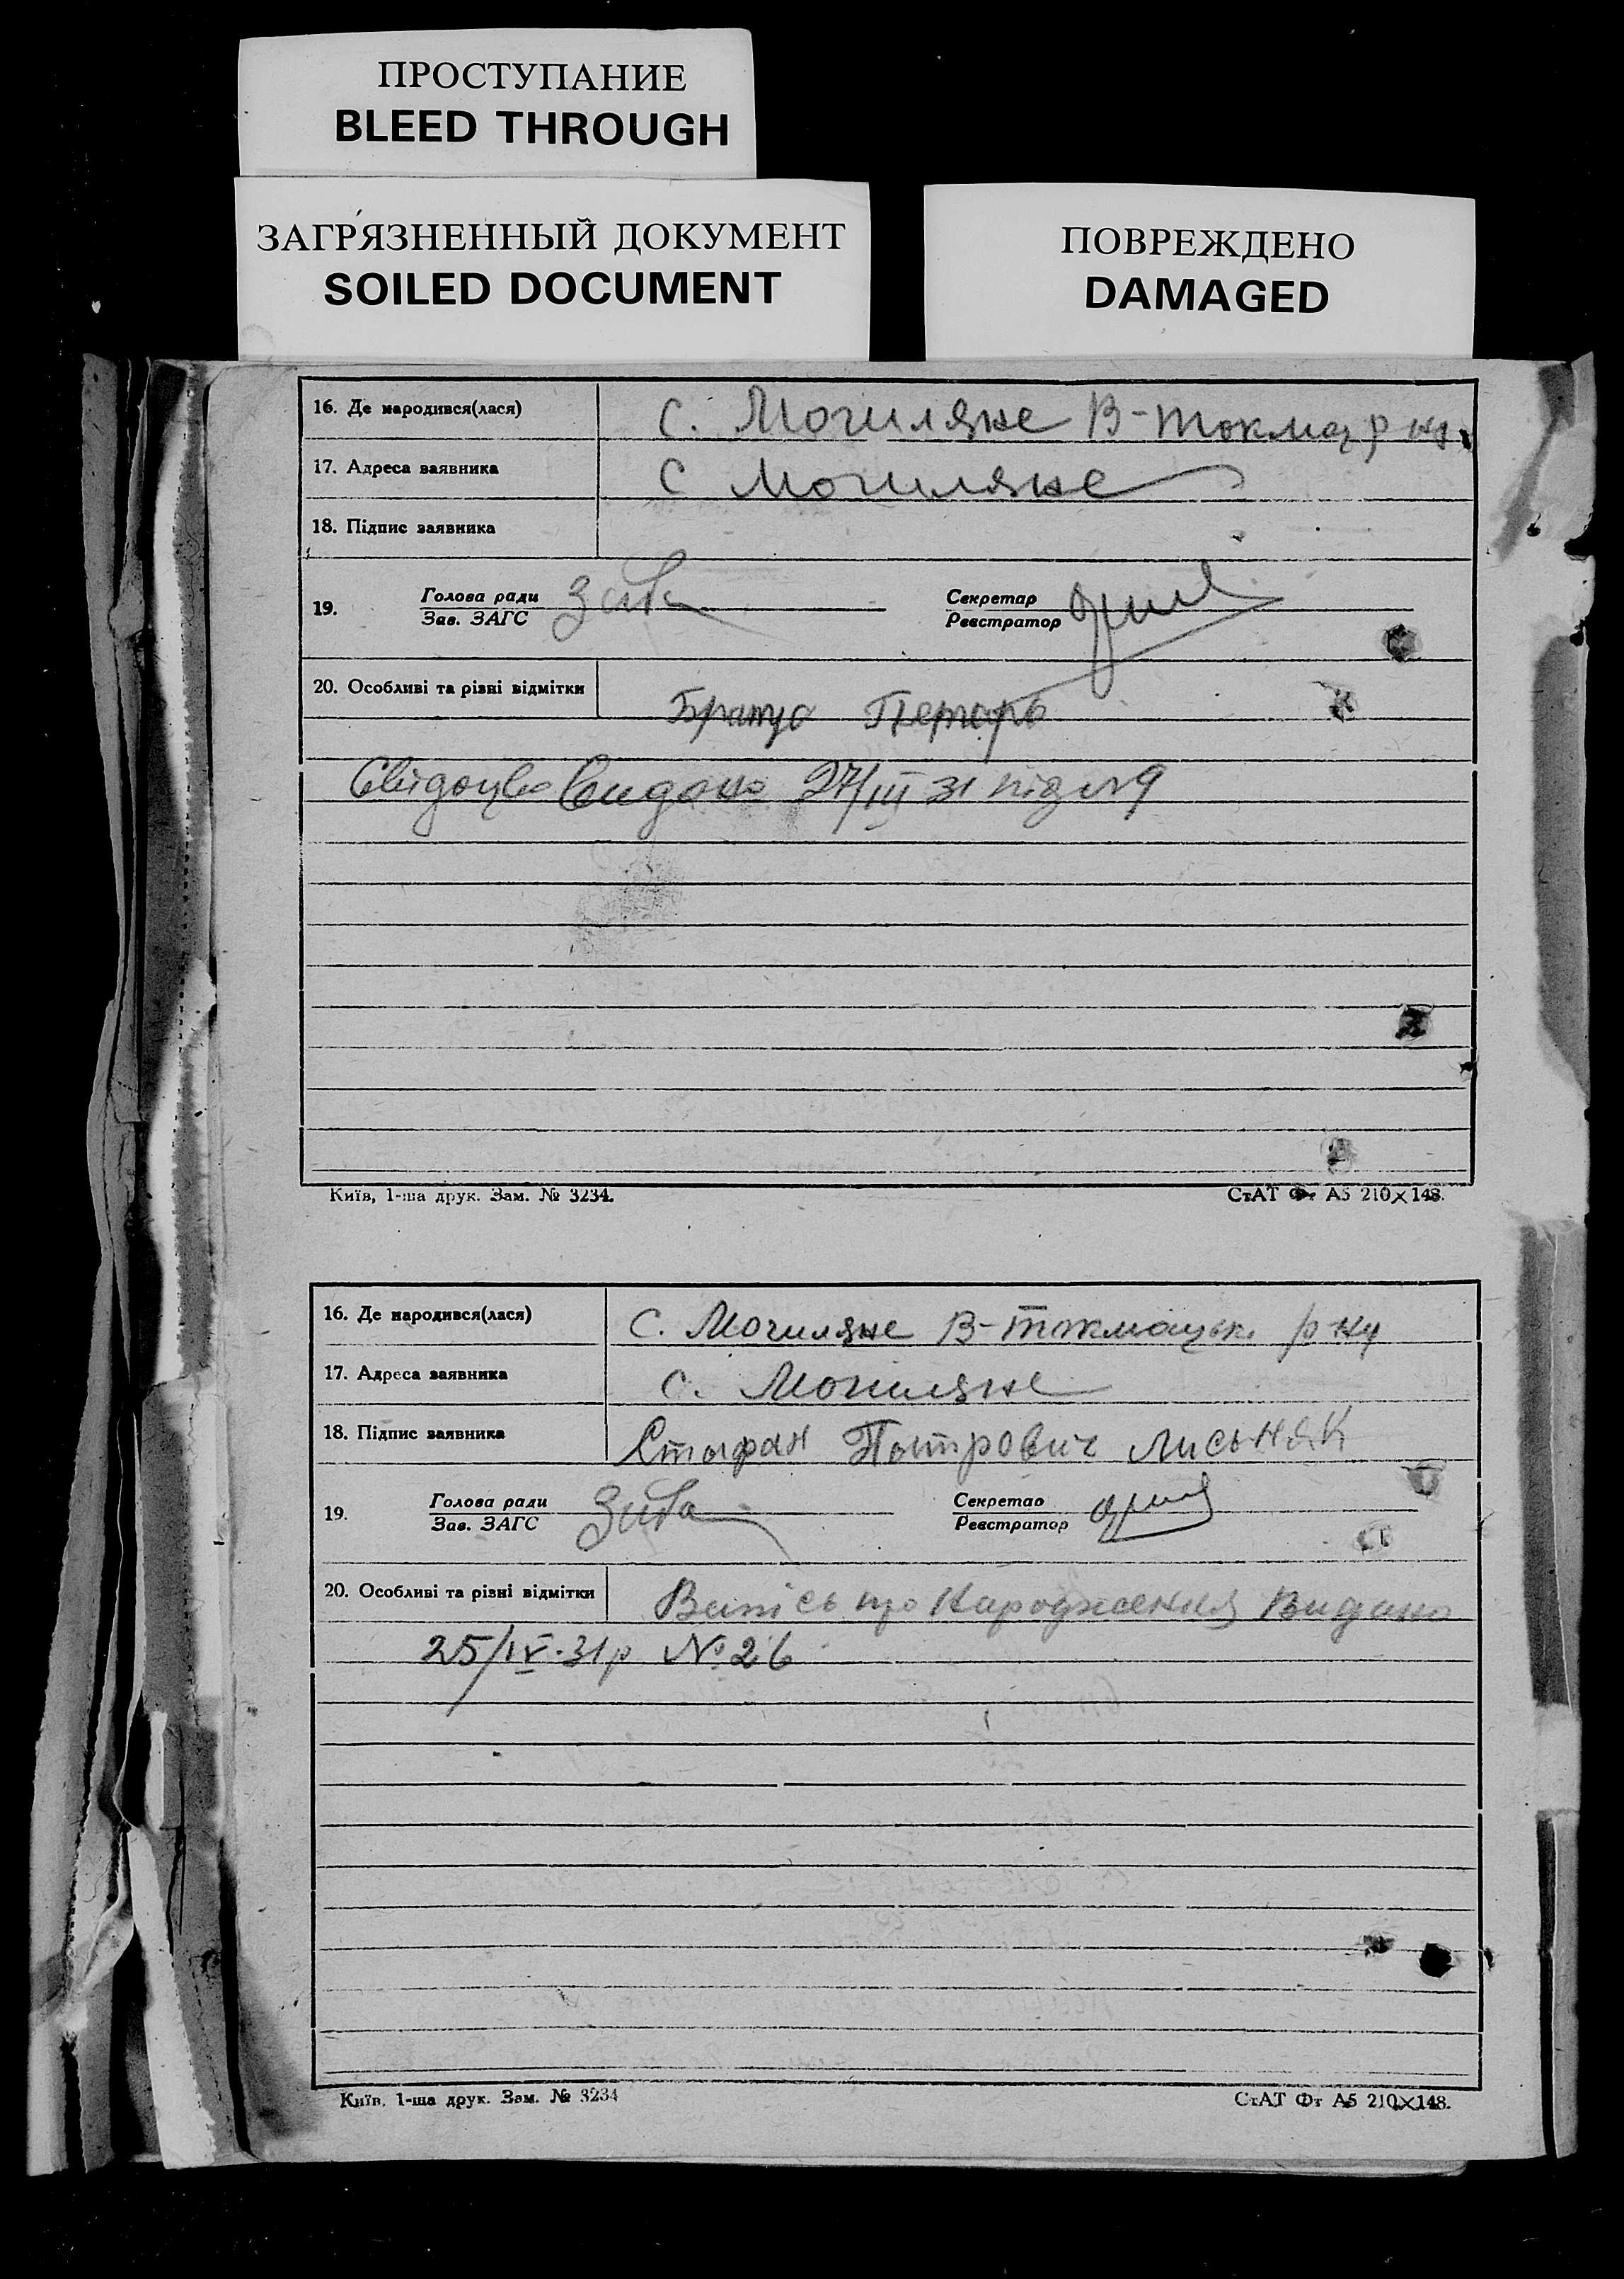 ПРОСТУПАНИЕ
BLEED THROUGH
ЗАГРЯЗНЕННЫЙ ДОКУМЕНТ
SOILED DOCUMENT
ПОВРЕЖДЕНО
DAMAGED
16. Де народився(лася) С. Могиляне В-Токмац р ну
17. Адреса заявника С Могиляне
18. Підпис заявника
19. Голова ради Зав. ЗАГС Секретар Реєстратор
20. Особливі та різні відмітки
Видано 27/III 31 під №9
Київ, 1-ша друк. Зам. № 3234. СтАТ Фт А5 210×148.
16. Де народився(лася) С. Могиляне В-Токмацьк. р ну
17. Адреса заявника С. Могиляне
18. Підпис заявника Стофан Потрович Лисьняк
19. Голова ради Зав. ЗАГС Секретар Реєстратор
20. Особливі та різні відмітки що Народження Видано
25/IV-31р №26
Київ, 1-ша друк. Зам. № 3234 СтАТ Фт А5 210×148.